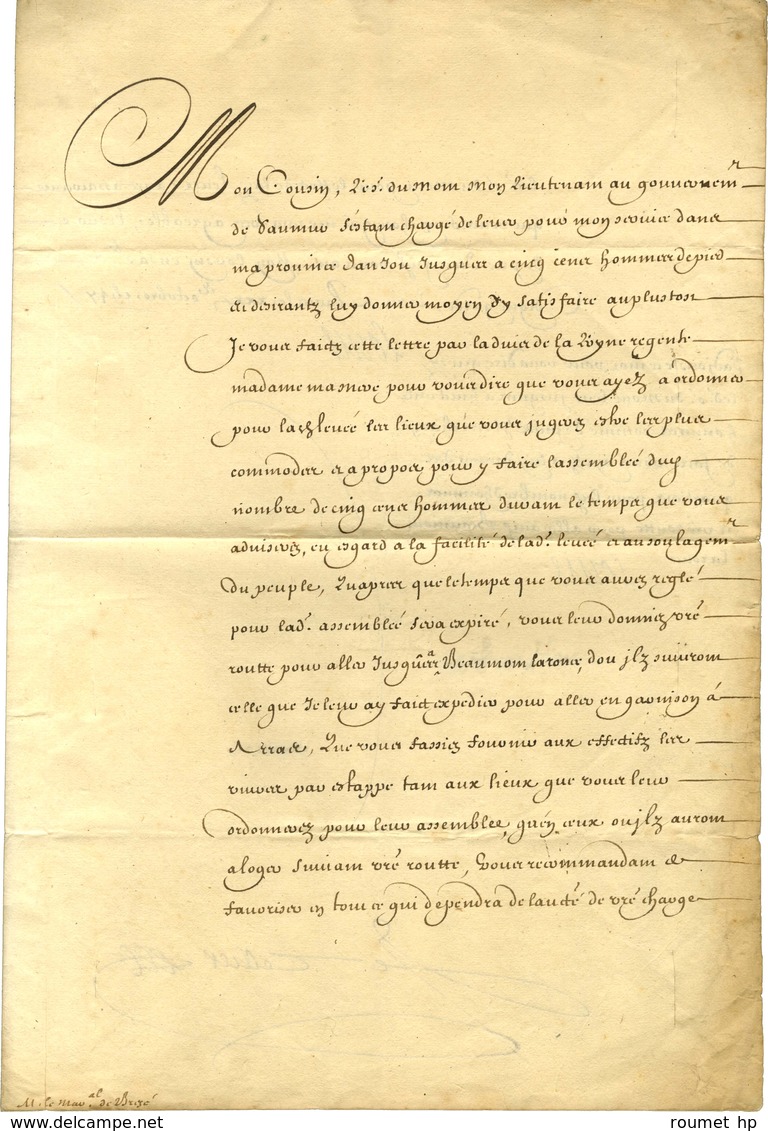 Mon Cousin, Le Sr. du Mont mon Lieutenant au gouvernemt
de Saumur s'estant chargé de lever pour mon service dans
ma province Danjou Jusques a cinq cens hommes de pied
et desirant luy donner moyen dy satisfaire au plustost
Je vous faictz cette lettre par ladvis de la Royne regente
madame ma mere pour vous dire que vous ayez a ordonner
pour lad. levée les lieux que vous jugerez estre les plus
commodes et a propos pour y faire lassemblée dud.
nombre de cinq cens hommes durant le temps que vous
adviserez, eu esgard a la facilité de lad. levée et au soulagemt
du peuple, Quapres que le temps que vous aurez reglé
pour lad. assemblée sera expiré, vous leur donniez vre
routte pour aller Jusques a Beaumont la ronce, dou ilz suivront
celle que Je leur ay faict expedier pour aller en garnison à
Arras, Que vous fassiez fournir aux effectifz les
vivres par estappe tant aux lieux que vous leur
ordonnerez pour leur assemblée, quen ceux ou ilz auront
a loger suivant vre routte, Vous recommandant de
favoriser en tout ce qui dependra de laucté de vre charge
M. le Maral. de Brezé
roumet hp